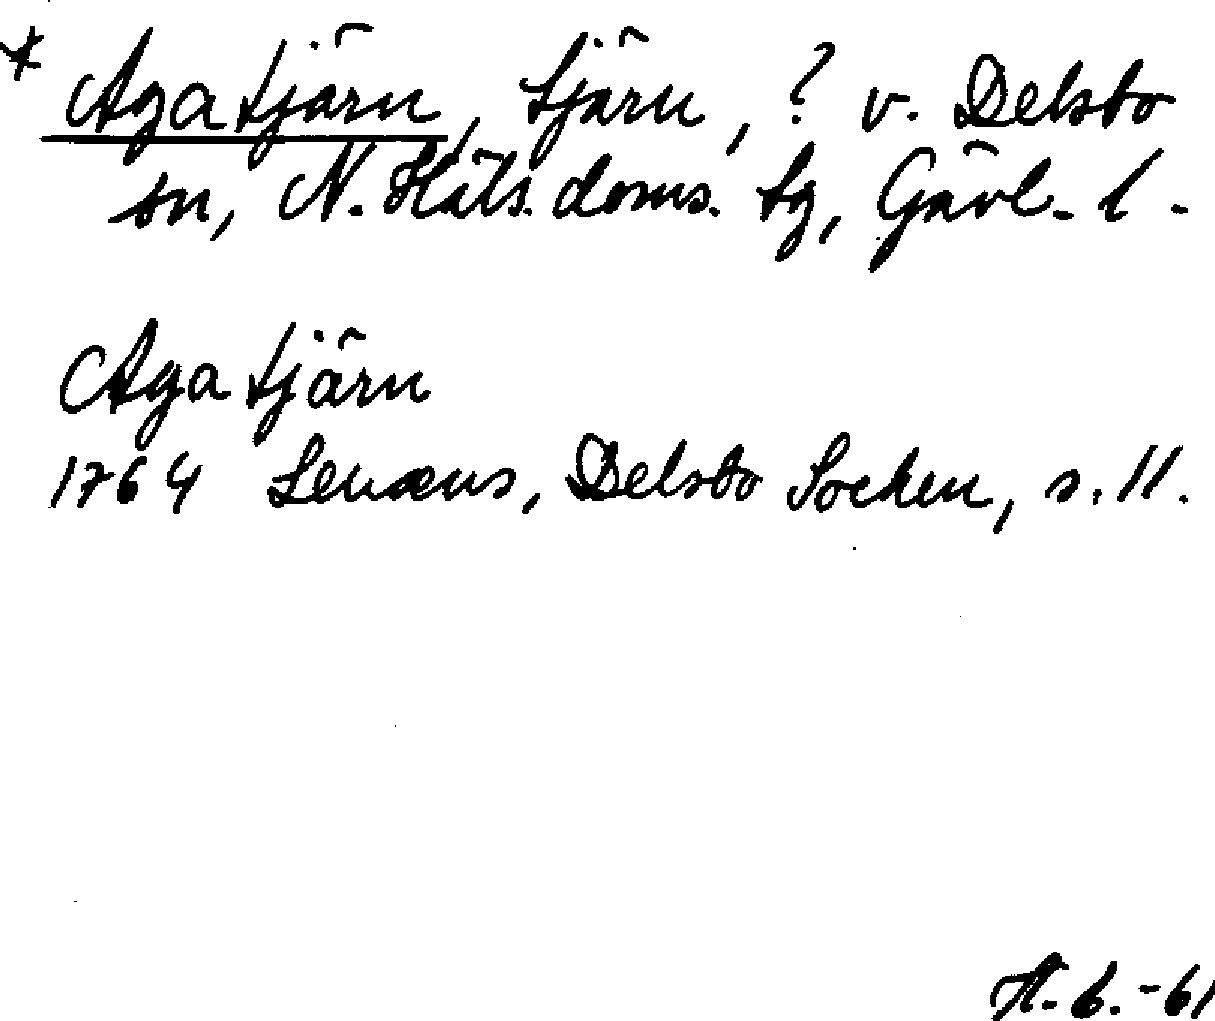 * Agatjärn, tjärn, ? v. Delsbo
sn, N. Häls. doms. tg, Gävl. l.
Agatjärn
1764 Lenæus, Delsbo Socken, s. 11.
H. b. -61